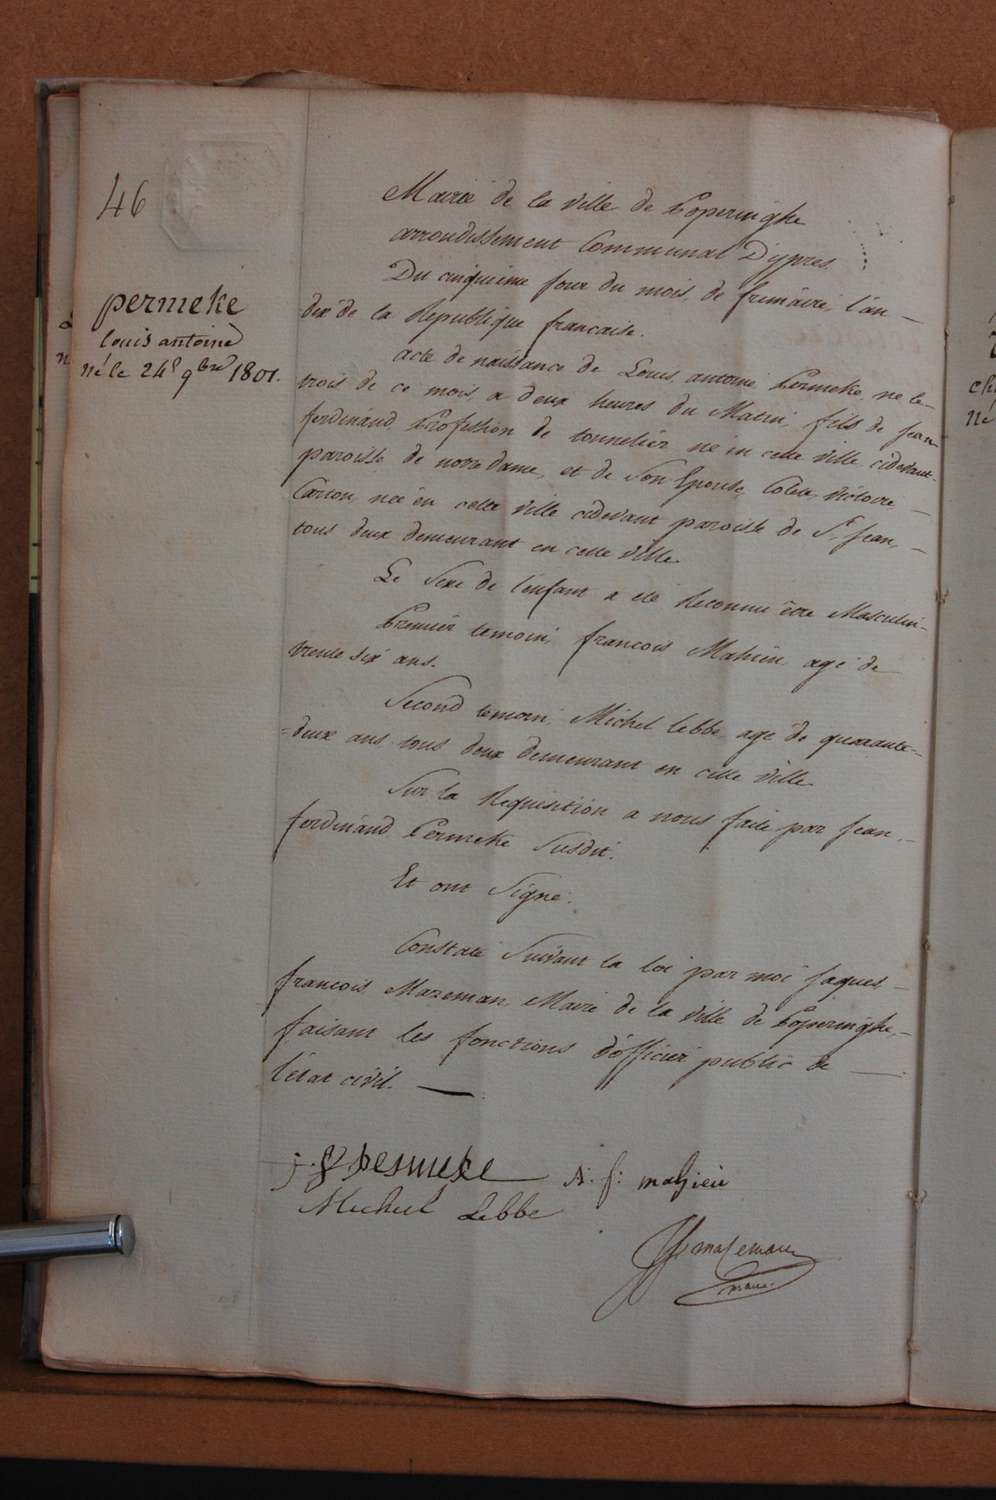 46
permeke
louis antoine
né le 24e 9bre 1801.
Mairie de la ville de Poperinghe
arrondissement Communal D'ypres.
Du cinquieme jour du mois de frimaire l'an
dix de la Republique francaise.
acte de naissance de Louis antoine Permeke, ne le
trois de ce mois, a deux heures du Matin, fils de jean
ferdinand Profession de tonnelier né en cette ville cidevant
paroisse de notre dame, et de Son Epouse, Colete victoire
Carton, née en cette ville cidevant paroisse de St. jean,
tous deux demeurant en cette ville.
Le Sexe de l'enfant a été Reconnu être Masculin
Premier temoin, francois Mahieu agé de
trente six ans.
Second temoin Michel Lebbe agé de quarante
deux ans tous deux demeurant en cette ville
Sur la Requisition a nous faite par jean
ferdinand Permeke Susdit.
Et ont Signé.
Constaté Suivant la loi par moi jaques
francois Mazeman Maire de la ville de Poperinghe,
faisant les fonctions d'officier public de
l'état civil.
j. f permeke f: mahieu
Michiel Lebbe
mazeman
maire
ch
né